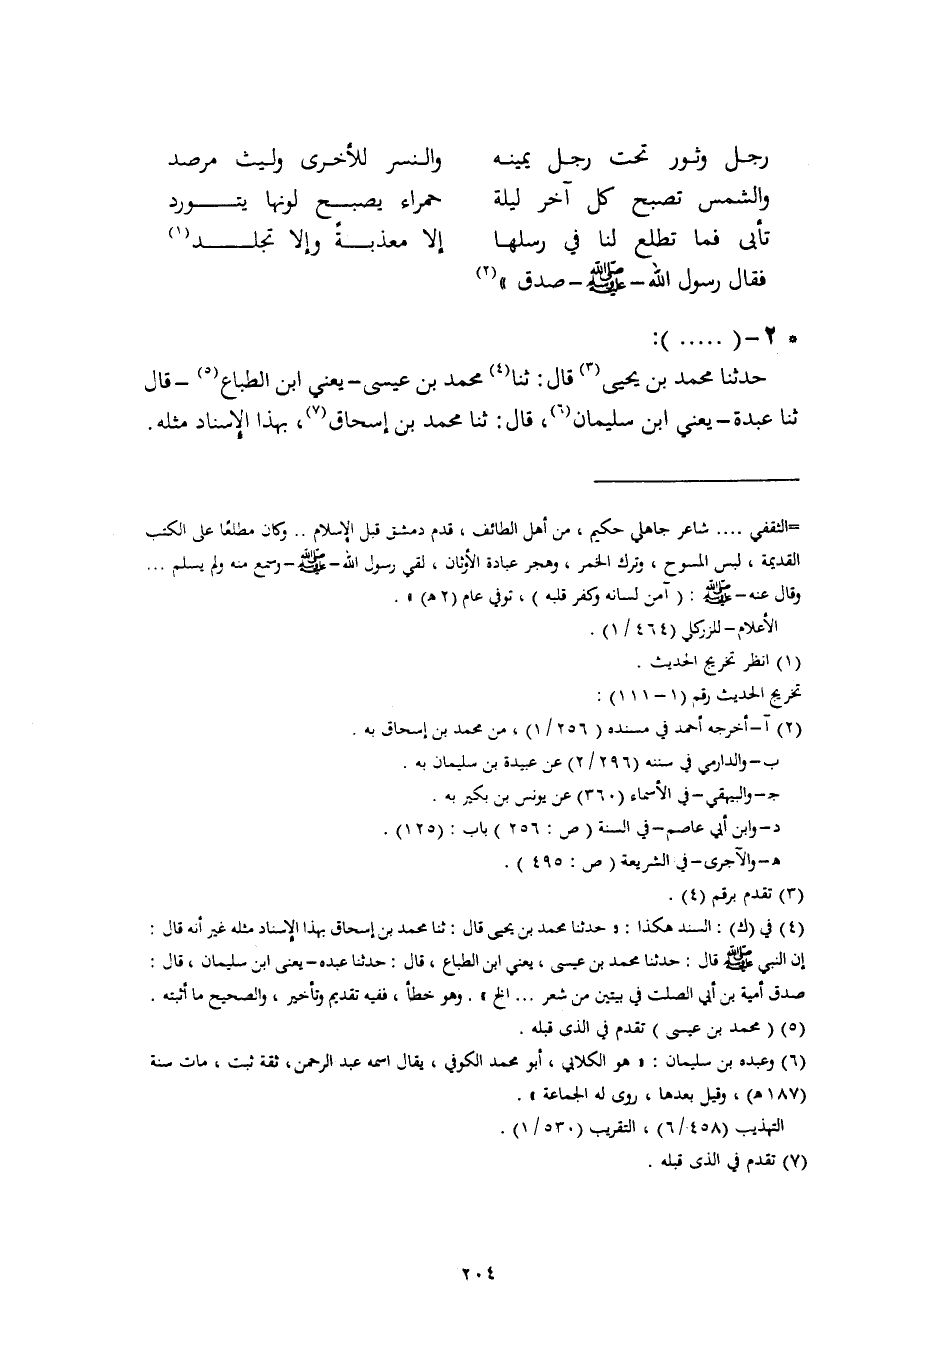 رجل وثور تحت رجل يمينه والنسر للأخرى وليث مرصد
والشمس تصبح كل آخر ليلة حمراء يصبح لونها يتورد
تأبى فما تطلع لنا في رسلها إلا معذبةً وإلا تجلد(١)
فقال رسول الله – ﷺ – صدق »(٢)
* ٢ – ( ..... ):
حدثنا محمد بن يحيى(٣) قال : ثنا(٤) محمد بن عيسى – يعني ابن الطباع(٥) – قال
ثنا عبدة – يعني ابن سليمان(٦)، قال : ثنا محمد بن إسحاق(٧)، بهذا الإسناد مثله .
=الثقفي .... شاعر جاهلي حكيم ، من أهل الطائف ، قدم دمشق قبل الإسلام .. وكان مطلعًا على الكتب
القديمة ، لبس المسوح ، وترك الخمر ، وهجر عبادة الأوثان ، لقي رسول الله – ﷺ – وسمع منه ولم يسلم ...
وقال عنه – ﷺ : ( آمن لسانه وكفر قلبه ) ، توفي عام (٢ هـ) » .
الأعلام – للزركلي (٤٦٤ / ١) .
(١) انظر تخريج الحديث .
تخريج الحديث رقم (١ – ١١١) :
(٢) آ – أخرجه أحمد في مسنده ( ٢٥٦ / ١) ، من محمد بن إسحاق به .
ب – والدارمي في سننه (٢٩٦ / ٢) عن عبيدة بن سليمان به .
جـ – والبيهقي – في الأسماء (٣٦٠) عن يونس بن بكير به .
د – وابن أبي عاصم – في السنة ( ص : ٢٥٦ ) باب : (١٢٥) .
هـ – والآجرى – في الشريعة ( ص : ٤٩٥ ) .
(٣) تقدم برقم (٤) .
(٤) في (ك) : السند هكذا : « حدثنا محمد بن يحيى قال : ثنا محمد بن إسحاق بهذا الإسناد مثله غير أنه قال :
إن النبي ﷺ قال : حدثنا محمد بن عيسى ، يعني ابن الطباع ، قال : حدثنا عبده – يعنى ابن سليمان ، قال :
صدق أمية بن أبي الصلت في بيتين من شعر ... الخ » . وهو خطأ ، ففيه تقديم وتأخير ، والصحيح ما أثبته .
(٥) ( محمد بن عيسى ) تقدم في الذى قبله .
(٦) وعبده بن سليمان : « هو الكلابي ، أبو محمد الكوفي ، يقال اسمه عبد الرحمن، ثقة ثبت ، مات سنة
(١٨٧ هـ) ، وقيل بعدها ، روى له الجماعة » .
التهذيب (٤٥٨ / ٦) ، التقريب (٥٣٠ / ١) .
(٧) تقدم في الذى قبله .
٢٠٤